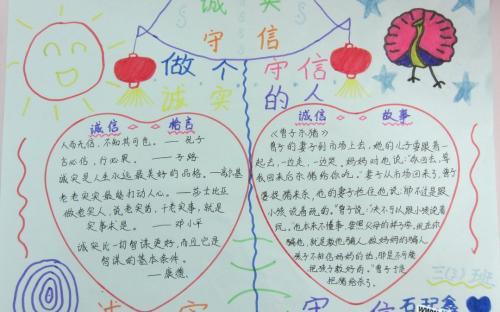 诚 实
守 信
做个 守信
诚实 的人
诚信 格言
人而无信,不知其可也。——孔子
言必信,行必果。——子路
诚实是人生永远最美好的品格。——高尔基
老老实实最能打动人心。——莎士比亚
做老实人,说老实话,干老实事,就是
实事求是。——邓小平
诚实比一切智谋更好,而且它是
智谋的基本条件。
——康德
诚信 故事
《曾子杀猪》
曾子的妻子到市场上去,她的儿子要跟着一
起去,一边走,一边哭。妈妈对他说:"你回去,等
我回来后杀猪给你吃。"妻子从市场回来了,曾子
要捉猪来杀,他的妻子拦住他说:"那不过是跟
小孩说着玩的。"曾子说:"决不可以跟小孩说着
玩。
孩子不相信妈妈的话,那是不可能
把孩子教好的。"曾子于是
把猪给杀了。
三(3)班
诚 实 守 信